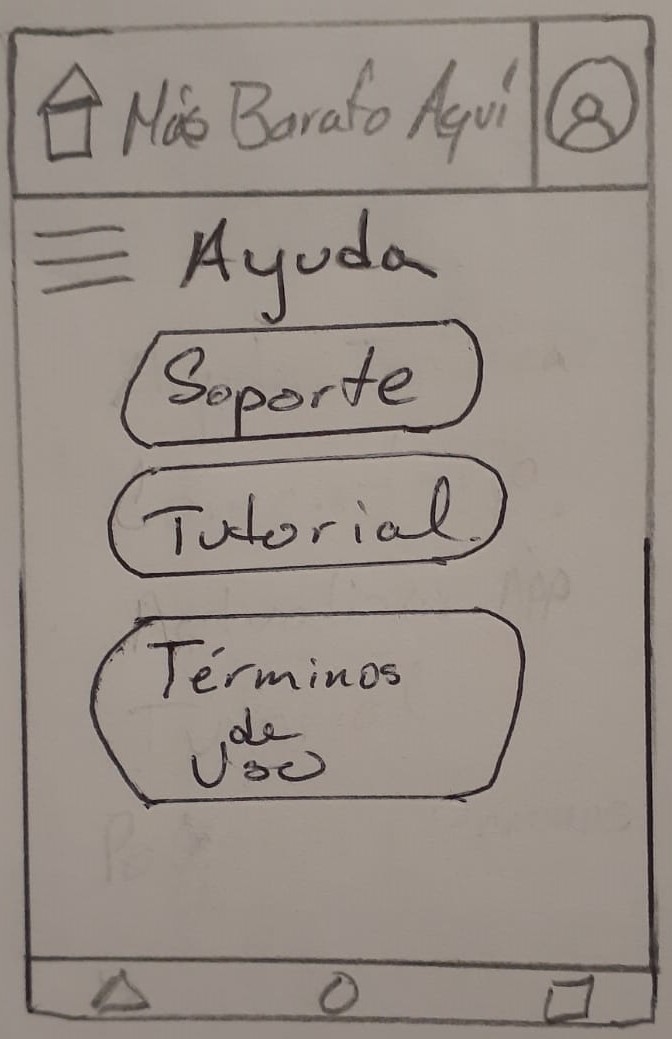 Más Barato Aquí
Ayuda
Soporte
Tutorial
Términos
de
Uso